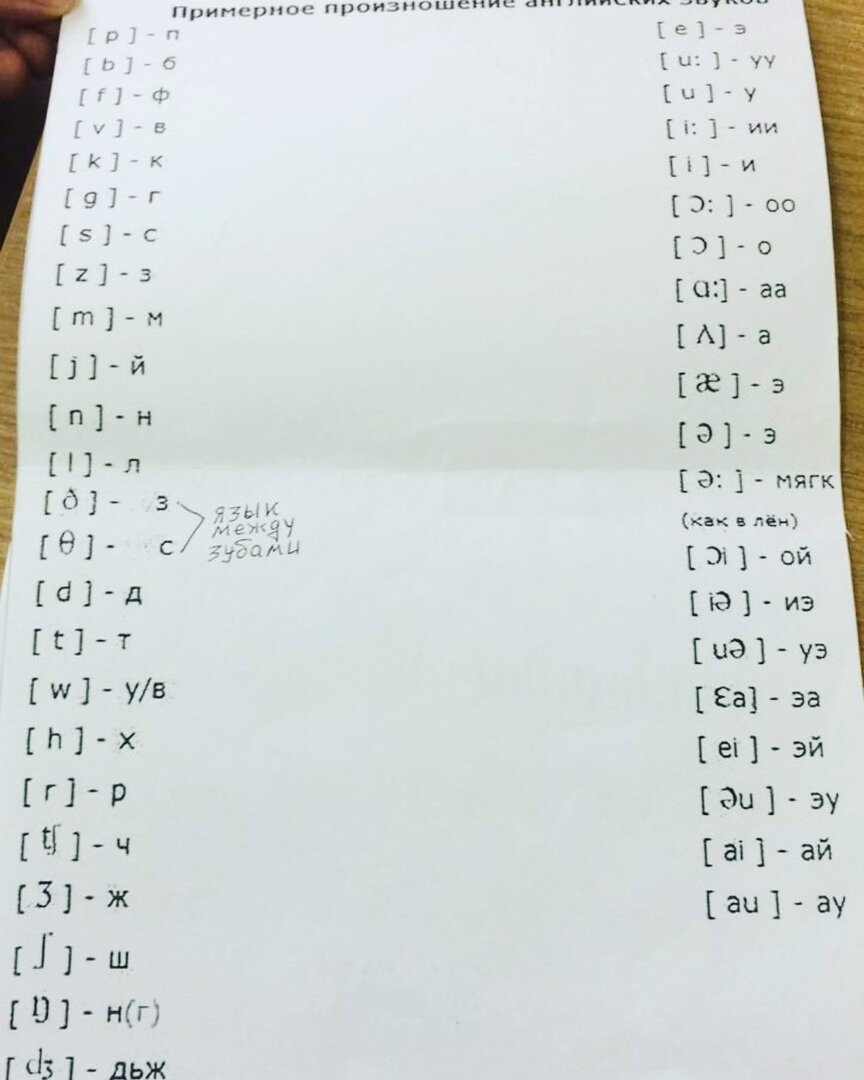 Примерное произношение английских звуков
[ p ] - п
[ b ] - б
[ f ] - ф
[ v ] - в
[ k ] - к
[ g ] - г
[ s ] - с
[ z ] - з
[ m ] - м
[ j ] - й
[ n ] - н
[ l ] - л
[ ð ] - з
[ θ ] - с
язык
между
зубами
[ d ] - д
[ t ] - т
[ w ] - у/в
[ h ] - х
[ r ] - р
[ ʧ ] - ч
[ ʒ ] - ж
[ ʃ ] - ш
[ ŋ ] - н(г)
[ ʤ ] - дьж
[ e ] - э
[ u: ] - уу
[ u ] - у
[ i: ] - ии
[ i ] - и
[ ɔ: ] - оо
[ ɔ ] - о
[ ɑ:] - аа
[ ʌ] - а
[ æ ] - э
[ ə ] - э
[ ə: ] - мягк
(как в лён)
[ ɔi ] - ой
[ iə ] - иэ
[ uə ] - уэ
[ ɛa] - эа
[ ei ] - эй
[ əu ] - эу
[ ai ] - ай
[ au ] - ау